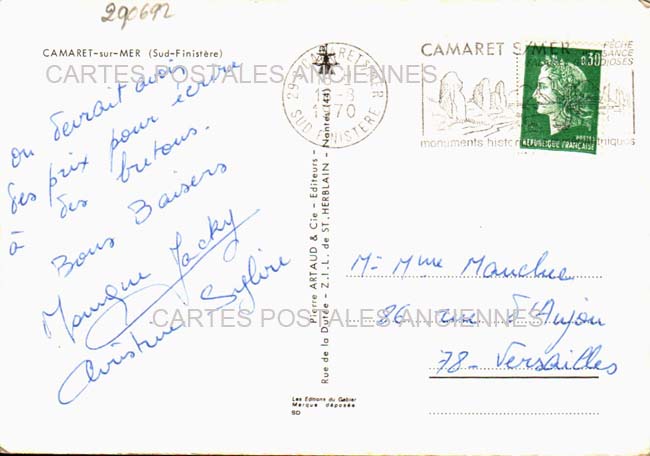 290692
CAMARET-sur-MER (Sud-Finistère)
on devrait avoir
des prix pour écrire
à des bretons.
Bons Baisers
Monique Jacky
Christine Sylvie
Pierre ARTAUD & Cie - Editeurs -
Rue de la Durée - Z.I.L. de ST. HERBLAIN - Nantes (44)
Les Editions du Gabier
Marque déposée
SD
29 CAMARET S MER
1970
SUD-FINISTERE
CAMARET S/MER
PÊCHE
monuments histor
0,30
POSTES
REPUBLIQUE FRANÇAISE
Mr Mme Manchue
86 rue d'Anjou
78 - Versailles
CARTES POSTALES ANCIENNES
CARTES POSTALES ANCIENNES